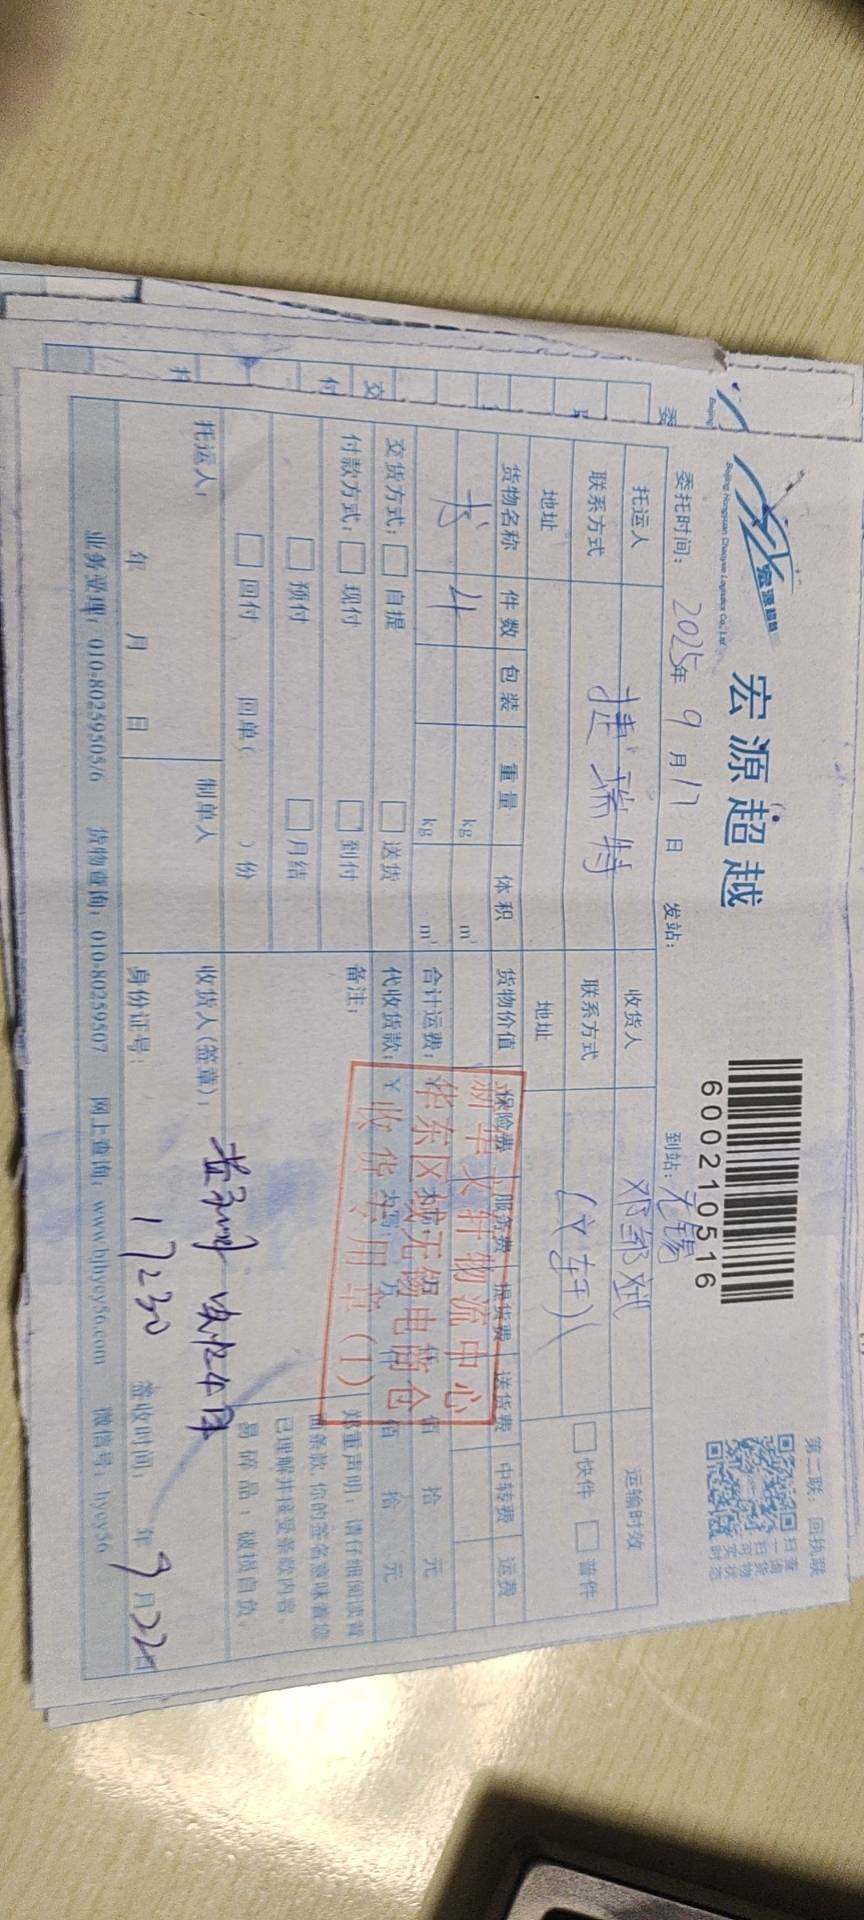 宏源超越
Beijing Hongyuan Chaoyue Logistics Co., Ltd
宏源超越
600210516
第二联：回执联
扫一扫可实时
查询货物状态
委托时间：2025年9月17日 发站： 到站：无锡
托运人 捷瑞特 收货人 邓邹斌 运输时效
联系方式 联系方式 (文轩) 快件 普件
地址 地址
货物名称 件数 包装 重量 体积 货物价值 保险费 服务费 提货费 送货费 中转费 运费
书 4 kg m³
kg m³ 合计运费：¥ 佰 拾 元
交货方式： 自提 送货 代收货款：¥ 大写： 万 仟 佰 拾 元
付款方式： 现付 到付 备注：
预付 月结
回付 回单( )份
郑重声明：请仔细阅读背
面条款，你的签名意味着您
已理解并接受条款内容。
易碎品：破损自负。
新华文轩物流中心
华东区域无锡电商仓
收货专用章(1)
托运人： 制单人 收货人(签章)： 收4件
年 月 日 身份证号： 17:30 签收时间： 年9月22日
业务受理：010-80259505/6 货物查询：010-80259507 网上查询：www.bjhycy56.com 微信号：hycy56